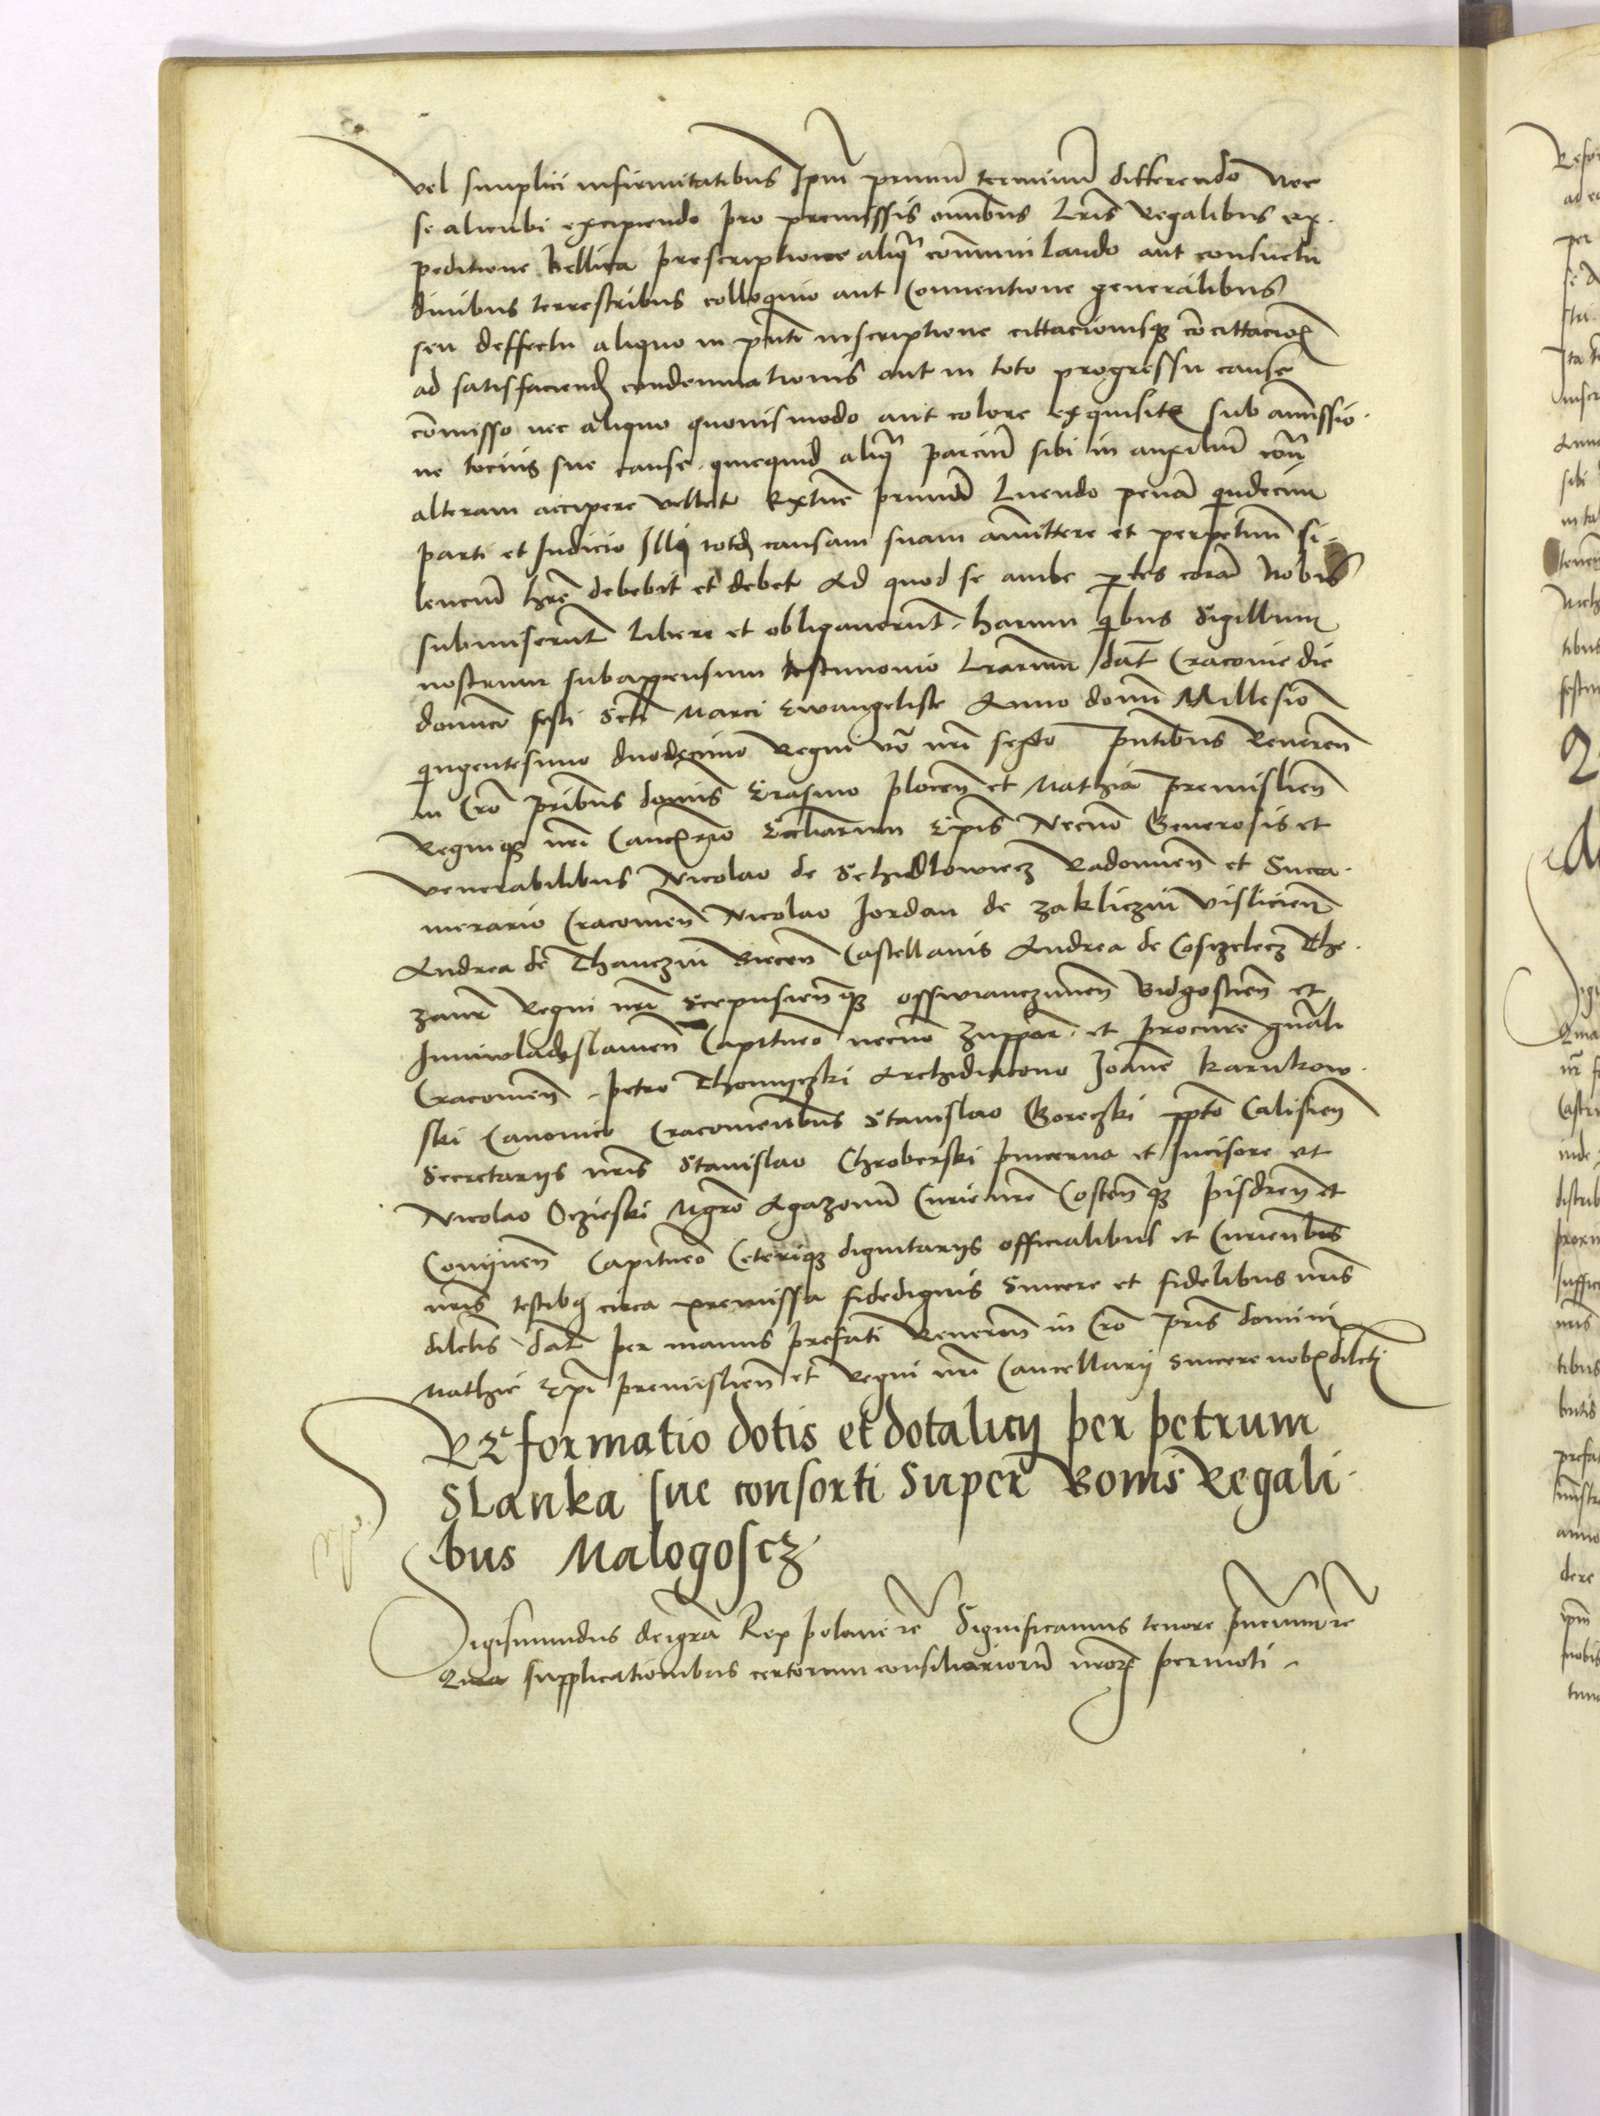 vel simplici infirmitatibus Ipm primum terminum differendo Nec
se alicubi excipiendo pro premissis omnibus Lris Regalibus ex-
peditione Bellica prescriptione aliqua communi lando aut consuetu
dinibus terrestribus colloquio aut Conventione generalibus
seu deffectu aliquo in pnti inscriptione cittacionisque
ad satisfaciend condemnationis aut in toto progressu cause
comisso nec aliquo quovismodo aut colore exquisito sub amissio-
ne tocius sue cause quicquid aliqua parcium sibi in auxilium
alteram accipere vellet Extunc primum Luendo penam quindecim
parti et Iudicio Illi causam suam amittere et perpetuum si-
lencium hre debebit et debet Ad quod se ambe partes coram Nobis
submiserunt Libere et obligaverunt harum quibus Sigillum
nostrum subappensum testimonio Lrarum dat Cracovie die
dominico festi Scti Marci Ewangeliste Anno domini Millesimo
quingentesimo duodecimo Regni vo nri sexto Pntibus Reveren
in Cro pribus domis Erasmo plocen et Mathia Premislien
Regnique nri Ecclarum Epis Necno Generosis et
Venerabilibus Nicolao de Schidlowiecz Radomien et Succa-
merario Cracovien Nicolao Iordan de zakliczin vislicien
Andrea de Thanczin Biecen Castellanis Andrea de Cosczelecz The-
zaur Regni nri Scepusien que osswianczimen Bidgostien et
Iuniwladislavien Capitneo necno Zuppar et procure gnali
Cracovien petro Thomyczki Archidiacono Ioanne Karnkow-
ski Canonico Cracoviensibus Stanislao Goreczki ppto Calisien
Secretarijs nris Stanislao Chroberski pincerna et Incisore et
Nicolao Oczieski Mgro Agazonum Curie nre Costen que pisdren et
Conijnen Capitneo Ceterisque dignitarijs officialibus et Curiensibus
nris testibus circa premissa fidedignis Sincere et fidelibus nris
dilctis dat per manus prefati Reveren in Cro pris domini
Mathie Epi premislien et Regni nri Cancellarij Sincere nob dilcti
Reformatio dotis et dotalicij per petrum
Slanka sue consorti Super Bonis Regali-
bus Malogoscz
Sigismundus dei gra Rex polonie re Significamus tenore
Quia supplicationibus certorum consiliariorum nrorum permoti